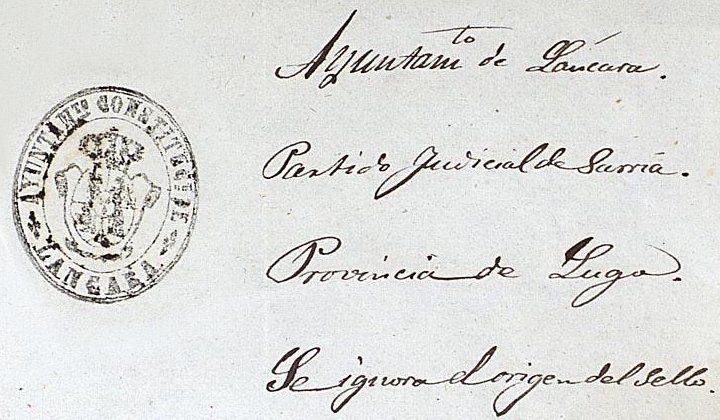 AYUNTAMto CONSTITUC. DE
LANCARA
Ayuntamto de Láncara.
Partido Judicial de Sarria.
Provincia de Lugo.
Se ignora el origen del Sello.